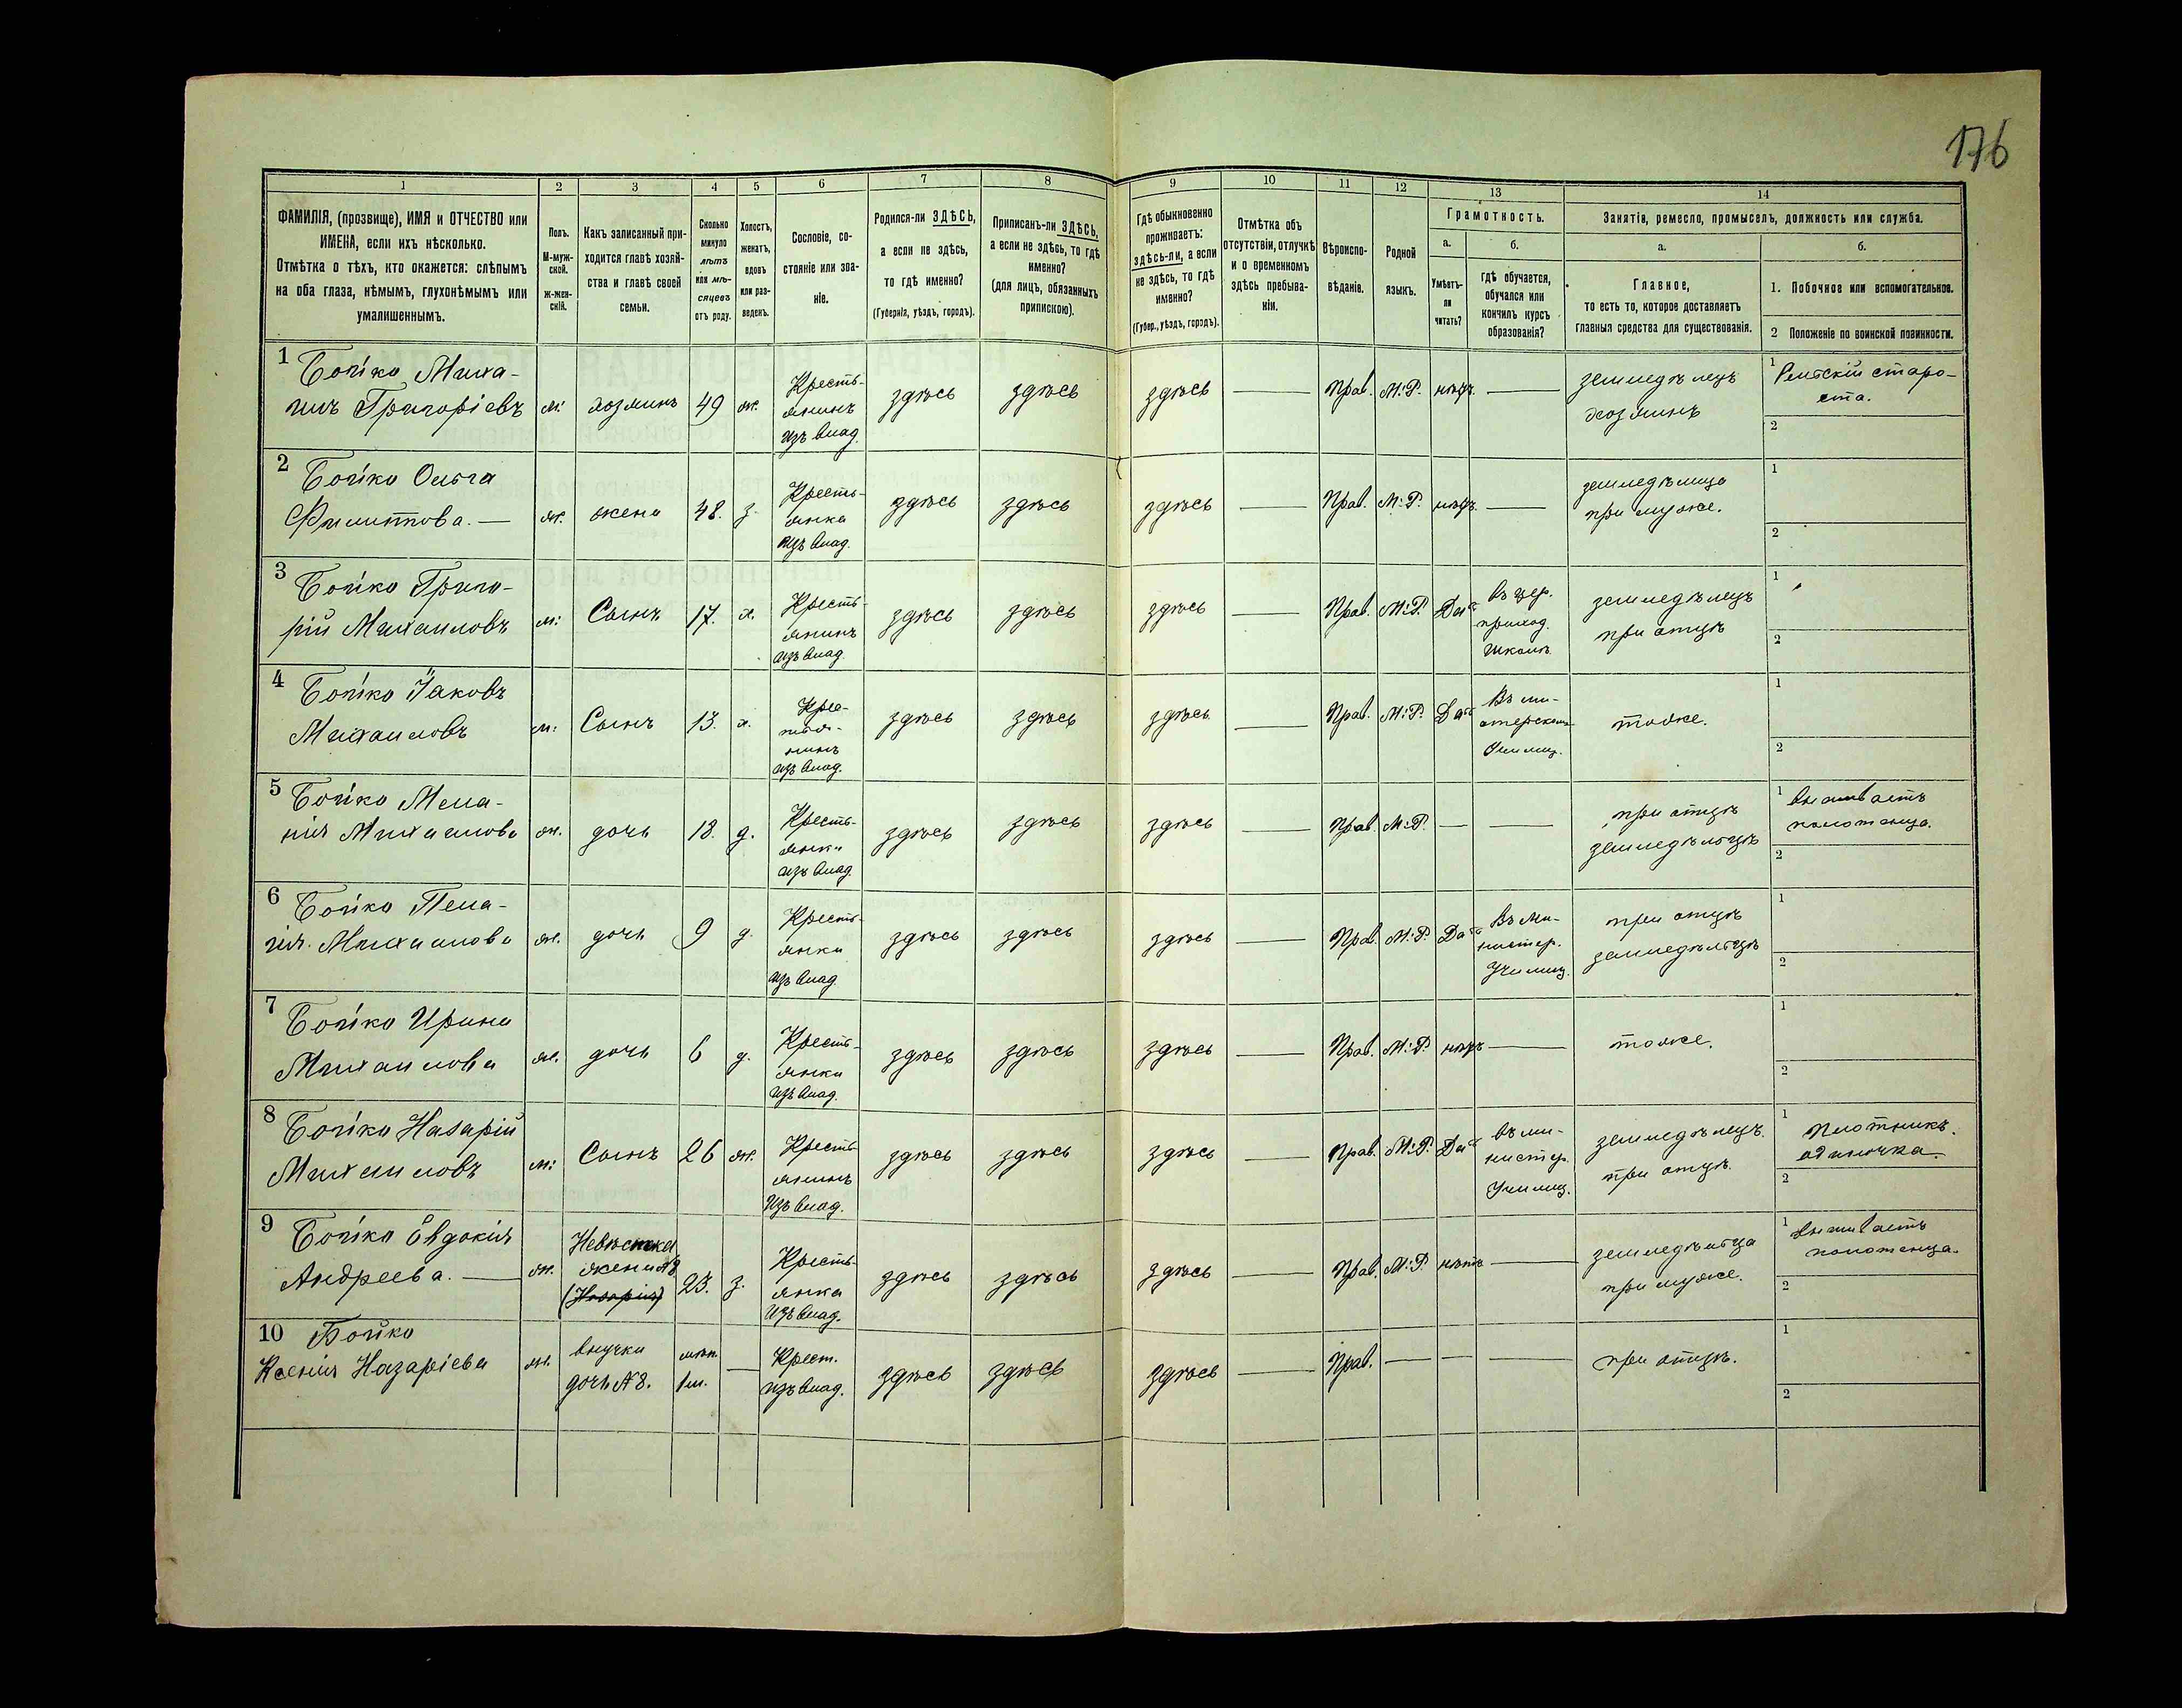 176
1 2 3 4 5 6 7 8 9 10 11 12 13 14
ФАМИЛІЯ, (прозвище), ИМЯ и ОТЧЕСТВО или
ИМЕНА, если ихъ нѣсколько.
Отмѣтка о тѣхъ, кто окажется: слѣпымъ
на оба глаза, нѣмымъ, глухонѣмымъ или
умалишеннымъ.
Полъ.
М-муж-
ской.
ж-жен-
скій.
Какъ записанный при-
ходится главѣ хозяй-
ства и главѣ своей
семьи.
Сколько
минуло
лѣтъ
или мѣ-
сяцевъ
отъ роду.
Холостъ,
женатъ,
вдовъ
или раз-
веденъ.
Сословіе, со-
стояніе или зва-
ніе.
Родился-ли ЗДѢСЬ,
а если не здѣсь,
то гдѣ именно?
(Губернія, уѣздъ, городъ).
Приписанъ-ли ЗДѢСЬ,
а если не здѣсь, то гдѣ
именно?
(для лицъ, обязанныхъ
припискою).
Гдѣ обыкновенно
проживаетъ:
здѣсь-ли, а если
не здѣсь, то гдѣ
именно?
(Губер., уѣздъ, городъ).
Отмѣтка объ
отсутствіи, отлучкѣ
и о временномъ
здѣсь пребыва-
ніи.
Вѣроиспо-
вѣданіе.
Родной
языкъ.
Грамотность.
а.
Умѣетъ-
ли
читать?
б.
гдѣ обучается,
обучался или
кончилъ курсъ
образованія?
Занятіе, ремесло, промыселъ, должность или служба.
а.
Главное,
то есть то, которое доставляетъ
главныя средства для существованія.
б.
1. Побочное или вспомогательное.
2 Положеніе по воинской повинности.
1 Бойко Миха-
илъ Григоріевъ
м:
хозяинъ
49
ж.
Кресть-
янинъ
изъ влад.
здѣсь
здѣсь
здѣсь
Прав.
М:Р.
нѣтъ
земледѣлецъ
хозяинъ
1 старо-
ста.
2
2 Бойко Ольга
Филиппова.
ж.
жена
48.
з.
Кресть-
янка
изъ влад.
здѣсь
здѣсь
здѣсь
Прав.
М:Р.
нѣтъ
земледѣлица
при мужѣ.
1
2
3 Бойко Григо-
рій Михаиловъ
м:
Сынъ
17.
х.
Кресть-
янинъ
изъ влад.
здѣсь
здѣсь
здѣсь
Прав.
М:Р.
Да
въ цер.
приход.
школѣ
земледѣлецъ
при отцѣ
1
2
4 Бойко Іаковъ
Михаиловъ
м:
Сынъ
13.
х.
Крес-
тья-
нинъ
изъ влад.
здѣсь
здѣсь
здѣсь
Прав.
М:Р.
Да
Въ ми-
Училищ.
тоже.
1
2
5 Бойко Мела-
нія Михаилова
ж.
дочь
18.
д.
Кресть-
янка
изъ влад.
здѣсь
здѣсь
здѣсь
Прав.
М:Р.
при отцѣ
земледѣльцѣ
1 вышиваетъ
полотенца.
2
6 Бойко Пела-
гія. Михаилова
ж.
дочь
9
д.
Кресть-
янка
изъ влад.
здѣсь
здѣсь
здѣсь
Прав.
М:Р.
Да
Въ Ми-
нистер.
Училищ.
при отцѣ
земледѣльцѣ
1
2
7 Бойко Ирина
Михаилова
ж.
дочь
6
д.
Кресть-
янка
изъ влад.
здѣсь
здѣсь
здѣсь
Прав.
М:Р.
нѣтъ
тоже.
1
2
8 Бойко Назарій
Михаиловъ
м:
Сынъ
26
ж.
Кресть-
янинъ
изъ влад.
здѣсь
здѣсь
здѣсь
Прав.
М:Р.
Да
въ ми-
нистер.
Училищ.
земледѣлецъ.
при отцѣ.
1 плотникъ.
одиночка.
2
9 Бойко Евдокія
Андреева.
ж.
Невѣстка
жена №8
(Назарія)
23.
з.
Кресть-
янка
изъ влад.
здѣсь
здѣсь
здѣсь
Прав.
М:Р.
нѣтъ
земледѣльца
при мужѣ.
1 вышиваетъ
полотенца.
2
10 Бойко
Ксенія Назаріева
ж.
внучка
дочь №8.
1м.
Крест.
изъ влад.
здѣсь
здѣсь
здѣсь
Прав.
при отцѣ.
1
2